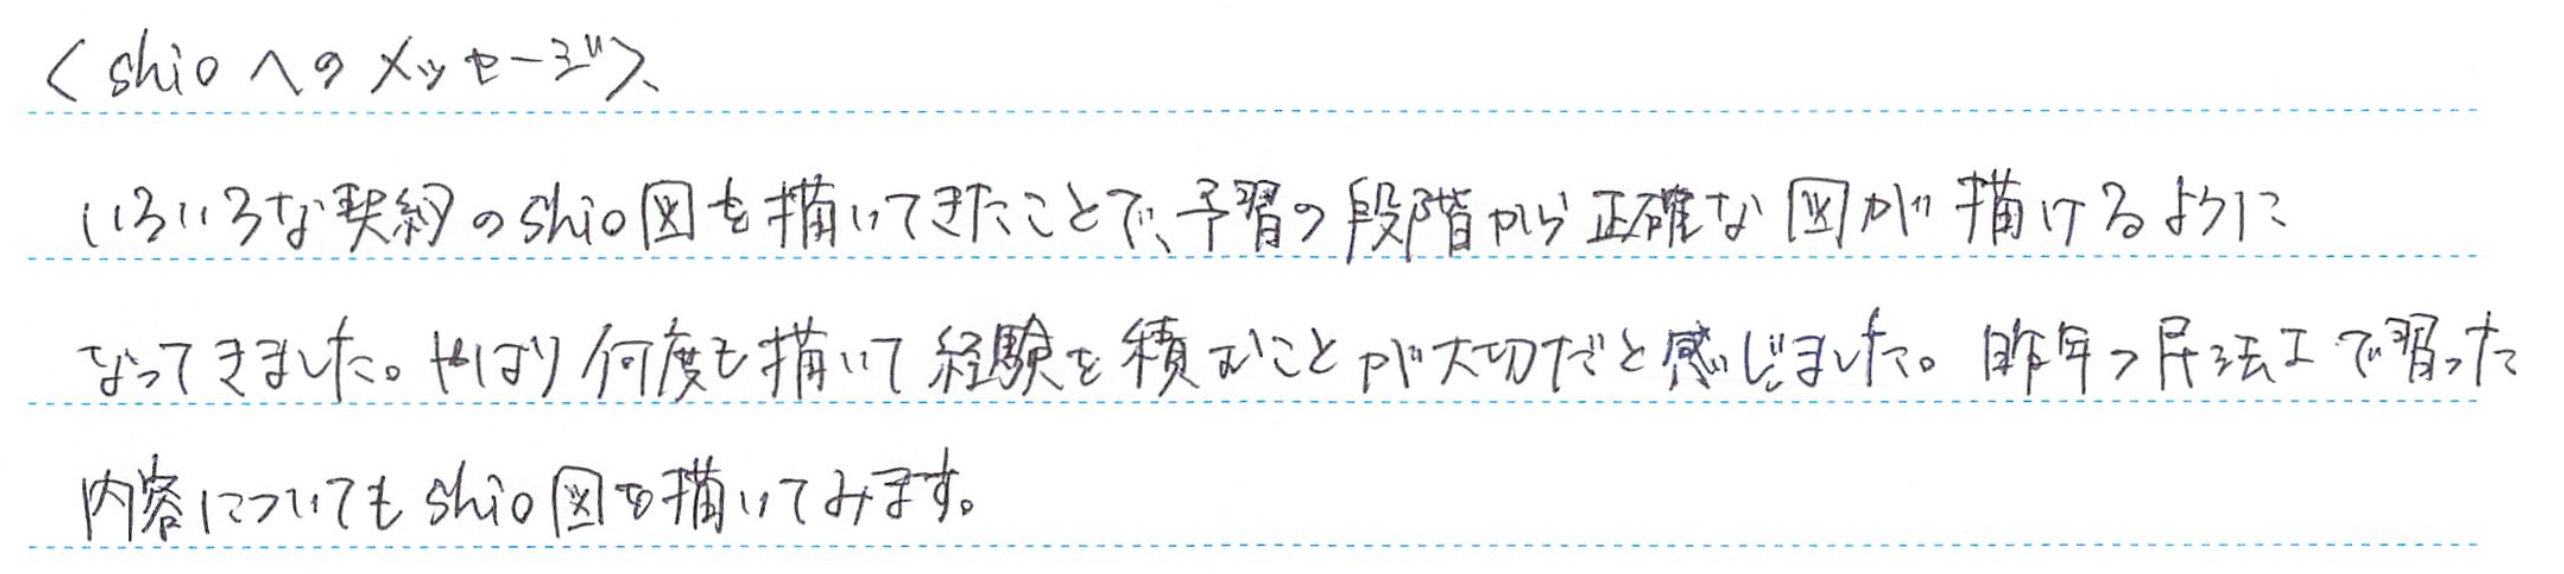 〈shioへのメッセージ〉
いろいろな契約のshio図を描いてきたことで、予習の段階から正確な図が描けるように
なってきました。やはり何度も描いて経験を積むことが大切だと感じました。昨年の民法エで習った
内容についてもshio図を描いてみます。